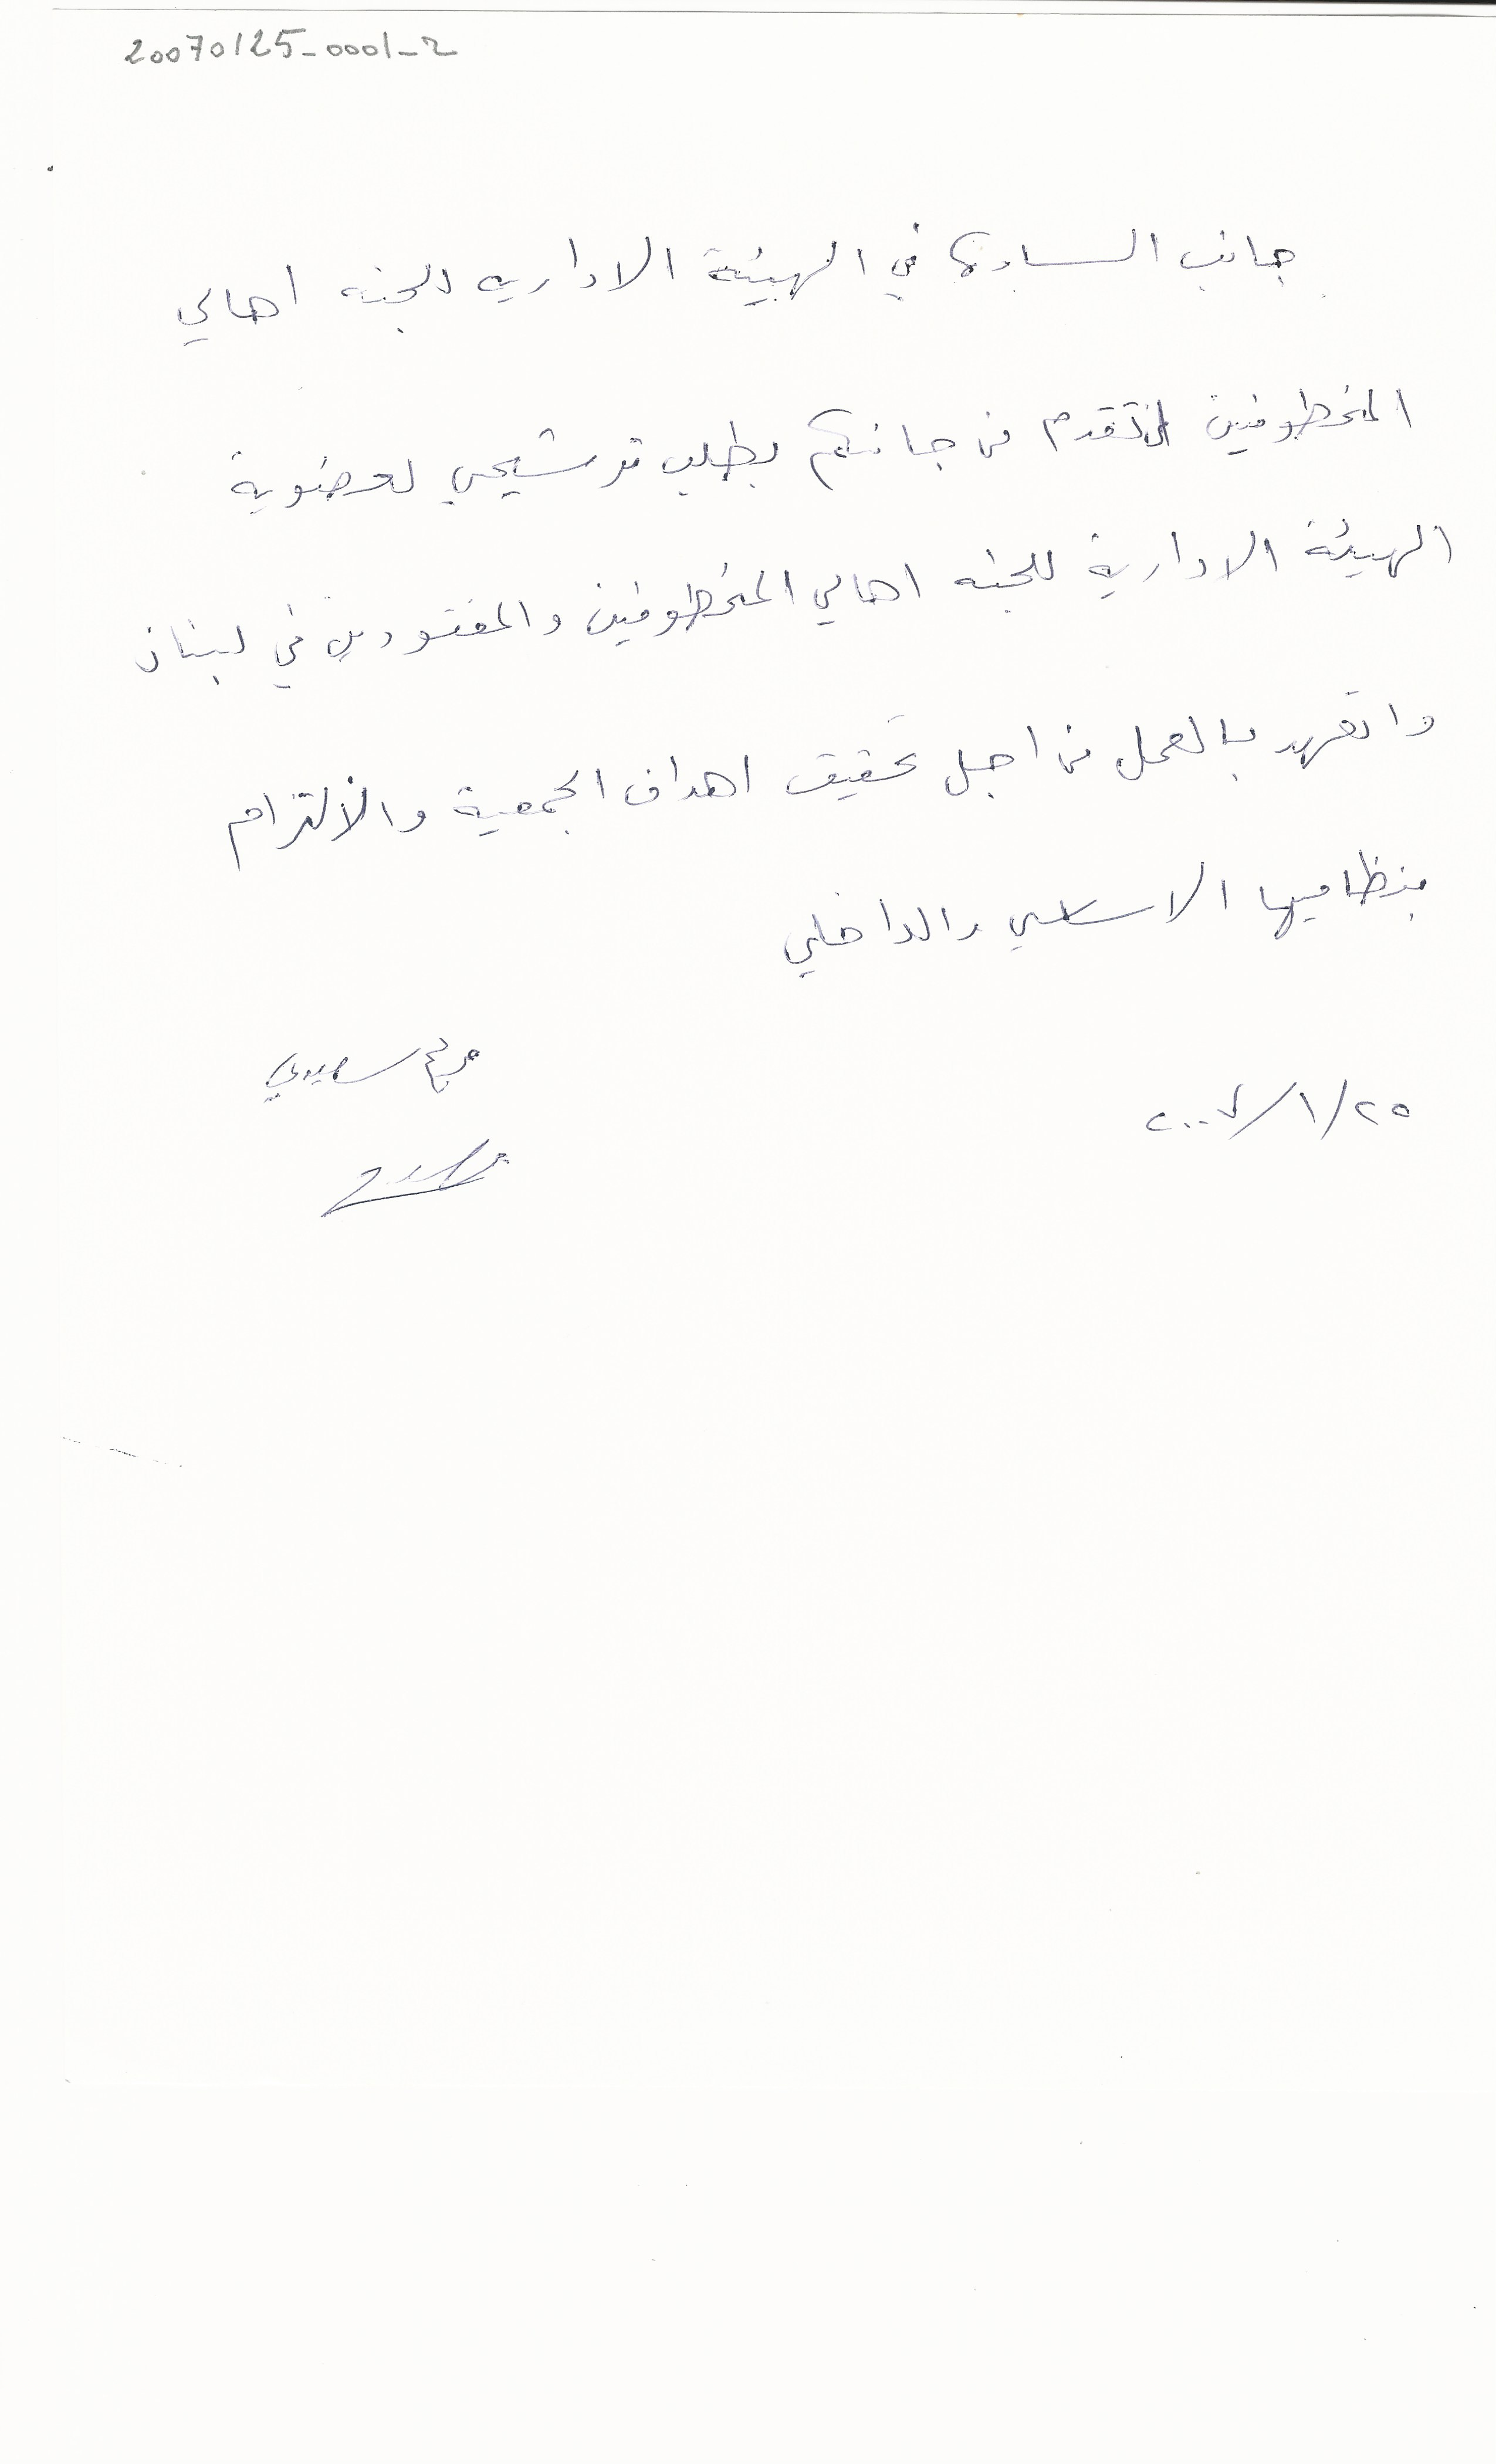 20070125-0001-2
جانب السادة في الهيئة الادارية للجنه اهالي
المخطوفين اتقدم من جانبكم بطلب ترشيحي لعضوية
الهيئة الادارية للجنه اهالي المخطوفين والمفقودين في لبنان
واتعهد بالعمل من اجل تحقيق اهداف الجمعية والالتزام
بنظاميها الاساسي والداخلي
مريم سعيدي
٢٥/١/٢٠٠٧